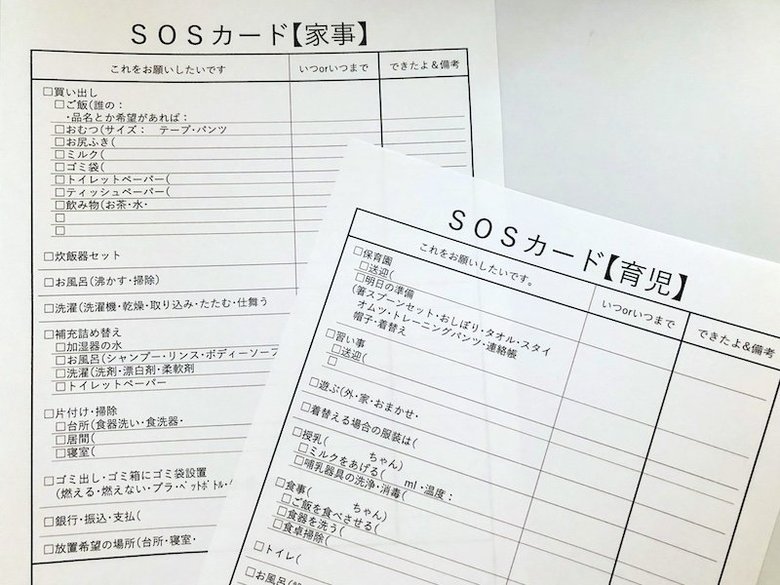 SOSカード【家事】
これをお願いしたいです いつorいつまで できたよ＆備考
□買い出し
□ご飯(誰の：
・品名とか希望があれば：
□おむつ(サイズ： テープ・パンツ
□お尻ふき(
□ミルク(
□ゴミ袋(
□トイレットペーパー(
□ティッシュペーパー(
□飲み物(お茶・水・
□
□
□炊飯器セット
□お風呂(沸かす・掃除)
□洗濯(洗濯機・乾燥・取り込み・たたむ・仕舞う
□補充詰め替え
□加湿器の水
□お風呂(シャンプー・リンス・ボディーソープ
□洗濯(洗剤・漂白剤・柔軟剤
□トイレットペーパー
□片付け・掃除
□台所(食器洗い・食洗器・
□居間(
□寝室(
□ゴミ出し・ゴミ箱にゴミ袋設置
(燃える・燃えない・プラ・ペットボトル・
□銀行・振込・支払(
□放置希望の場所(台所・寝室・
SOSカード【育児】
これをお願いしたいです。 いつorいつまで できたよ＆備考
□保育園
□送迎(
□明日の準備
(箸スプーンセット・おしぼり・タオル・スタイ
オムツ・トレーニングパンツ・連絡帳
帽子・着替え
□習い事
□送迎(
□
□遊ぶ(外・家・おまかせ・
□着替える場合の服装は(
□授乳( ちゃん)
□ミルクをあげる( ml・温度：
□哺乳器具の洗浄・消毒(
□食事( ちゃん)
□ご飯を食べさせる(
□食器を洗う(
□食卓掃除(
□トイレ(
□お風呂(